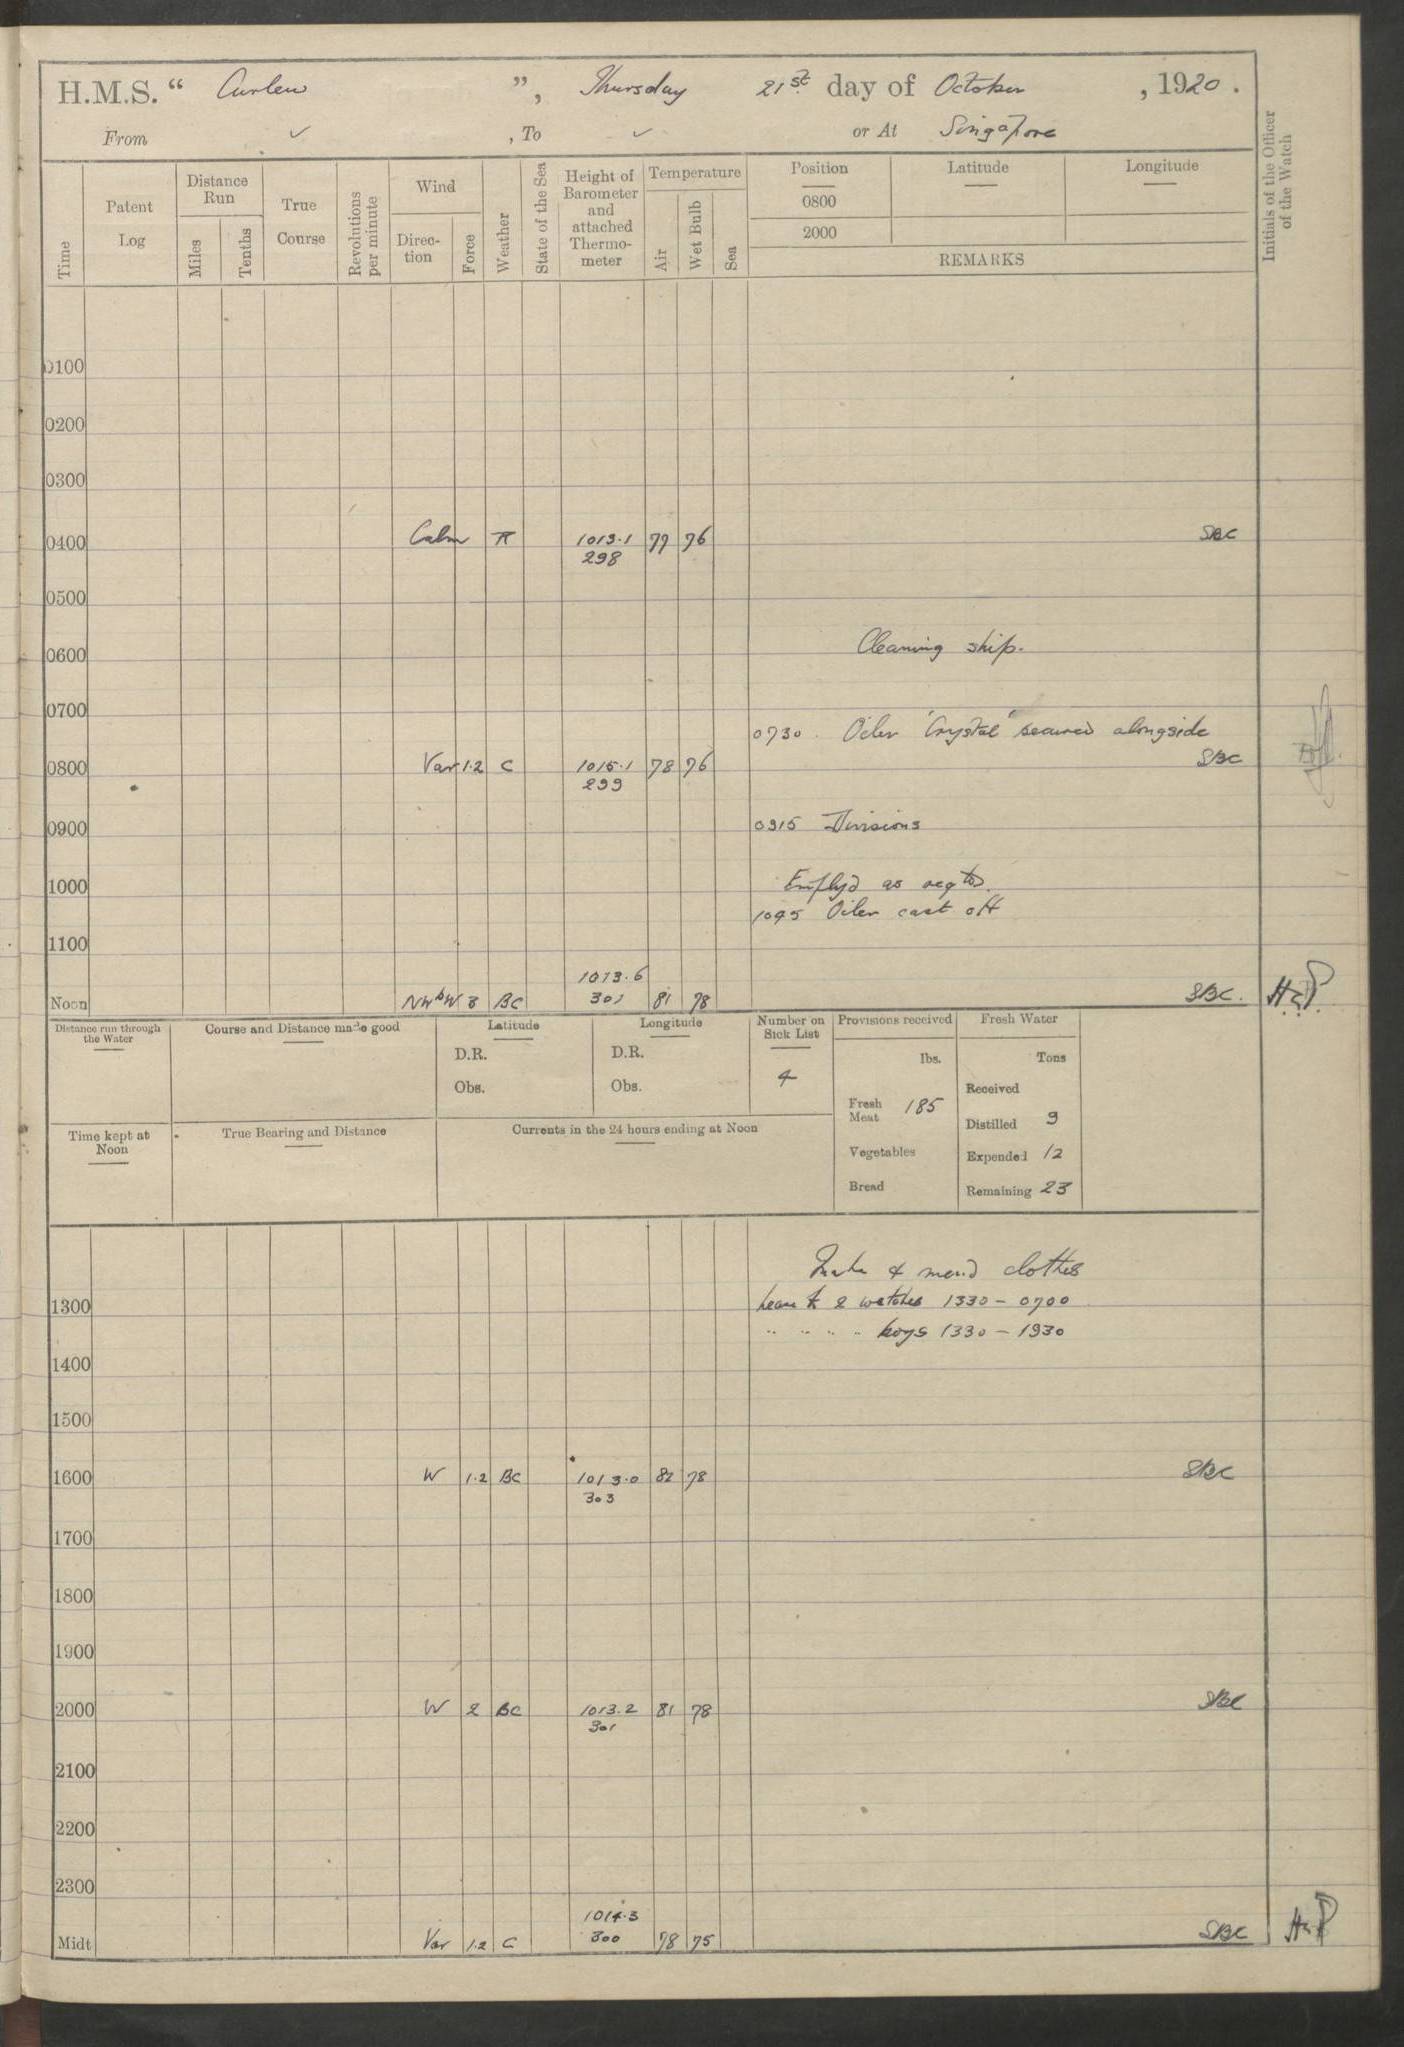 H.M.S. “ Curlew ”, Thursday 21st day of October, 1920.
From ✓, To ✓ or At Singapore
Initials of the Officer of the Watch
Time
Patent Log
Distance Run
Miles
Tenths
True Course
Revolutions per minute
Wind
Direc- tion
Force
Weather
State of the Sea
Height of Barometer and attached Thermo- meter
Temperature
Air
Wet Bulb
Sea
Position Latitude Longitude
0800
2000
REMARKS
0100
0200
0300
0400 Calm 1013.1 77 76 SBC
298
0500
0600 Cleaning ship.
0700
0730 Oiler 'Crystal' secured alongside
0800 Var 1.2 C 1015.1 78 76 SBC
299
0900 0915 Divisions
1000 Employd as reqtd.
1045 Oiler cast off
1100
1013.6
Noon NWbW 3 BC 301 81 78 SBC.
Distance run through the Water
Course and Distance made good
Latitude
D.R.
Obs.
Longitude
D.R.
Obs.
Number on Sick List
4
Provisions received
lbs.
Fresh Meat 185
Vegetables
Bread
Fresh Water
Tons
Received
Distilled 9
Expended 12
Remaining 23
Time kept at Noon
True Bearing and Distance
Currents in the 24 hours ending at Noon
Make & mend clothes
1300 Leave to 2 watches 1330 - 0700
" " " " boys 1330 - 1930
1400
1500
1600 W 1.2 BC 1013.0 82 78 SBC
303
1700
1800
1900
2000 W 2 BC 1013.2 81 78 SBC
301
2100
2200
2300
1014.3
Midt Var 1.2 C 300 78 75 SBC